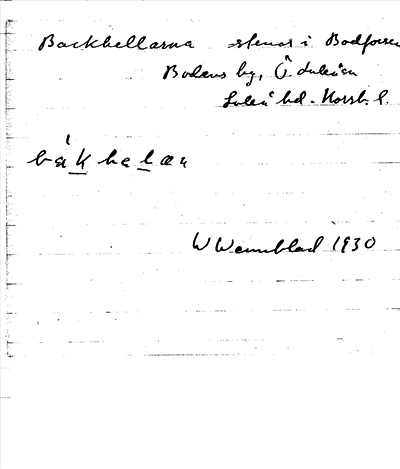 Backhellarna stenar i Bodforsen
Bodens by, Ö. Luleå sn
Luleå hd. Norrb. l.
bákhelaṇ
W Wennblad 1930